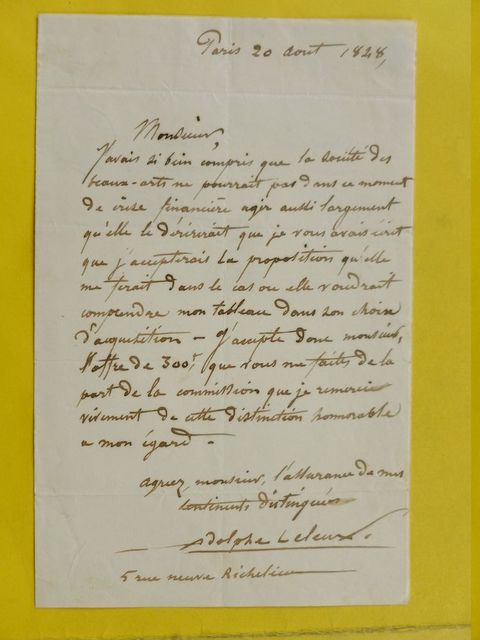 Paris 20 aout 1848,
Monsieur,
J'avais si bien compris que la société des
beaux-arts ne pourrait pas dans ce moment
de crise financière agir aussi largement
qu'elle le désirerait que je vous avais écrit
que j'accepterais la proposition qu'elle
me ferait dans le cas ou elle voudrait
comprendre mon tableau dans son choix
d'acquisition — J'accepte donc monsieur,
l'offre de 300f que vous me faits de la
part de la commission que je remercie
vivement de cette distinction honorable
a mon égard.
agréez, monsieur, l'assurance de mes
sentiments distingués
Adolphe Leleux.
5 rue neuve Richelieu